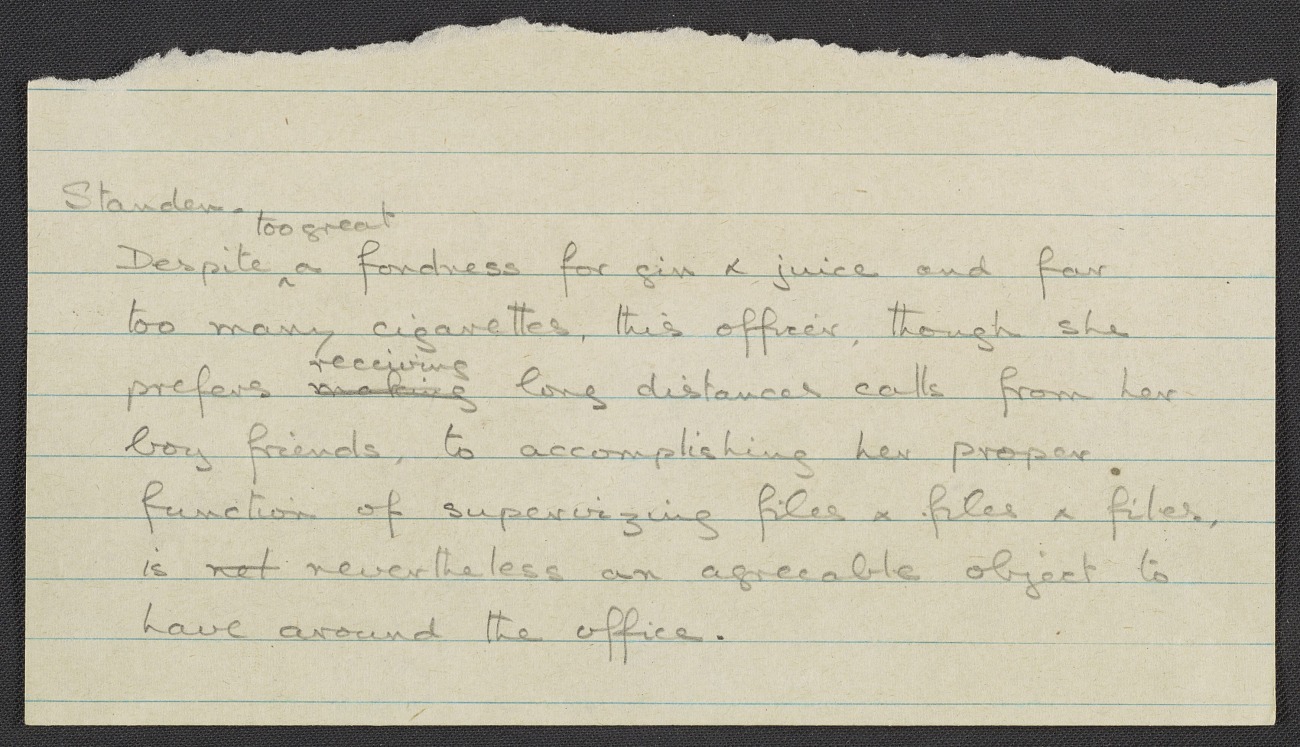 Standen.
too great
Despite ^ a fondness for gin & juice and far
too many cigarettes, this officer, though she
receiving
prefers making long distances calls from her
boy friends, to accomplishing her proper
function of supervizing files & files & files,
is not nevertheless an agreeable object to
have around the office.